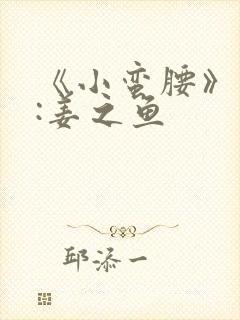 《小蛮腰》
:姜之鱼
邱添一